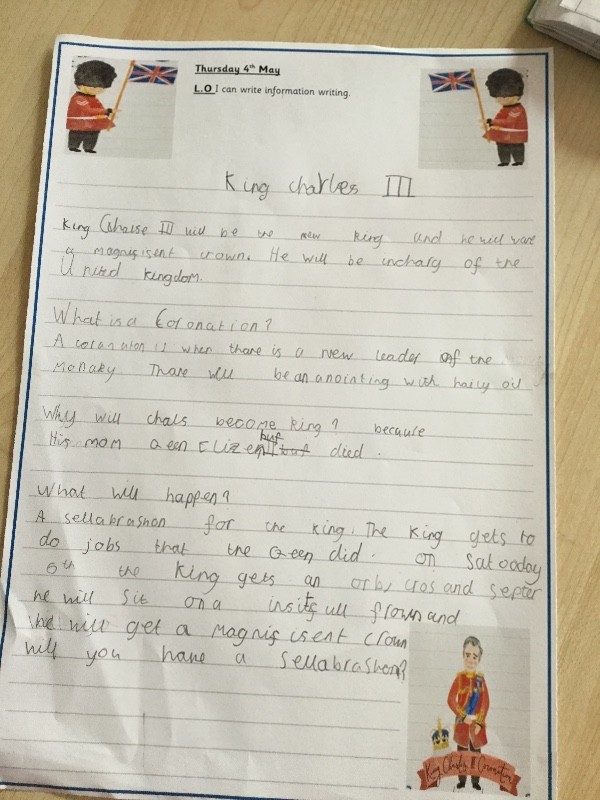 Thursday 4th May
L.O I can write information writing.
King charles III
King Charse III will be the new King and he will ware
a magnifisent crown. He will be incharg of the
United kingdom.
What is a Coronation?
A coranaton is when thare is a new leader of the
Monaky Thare will be an anointing with haily oil
Why will chals become king? because
His mom Qeen Elizen buf died.
What will happen?
A sellabrashon for the king. The King gets to
do jobs that the Qeen did. on Satooday
6th the King gets an orb, cros and septer
he will sit on a insitfull frown and
he will get a magnifisent crown
will you have a sellabrashon?
King Charles III Coronation